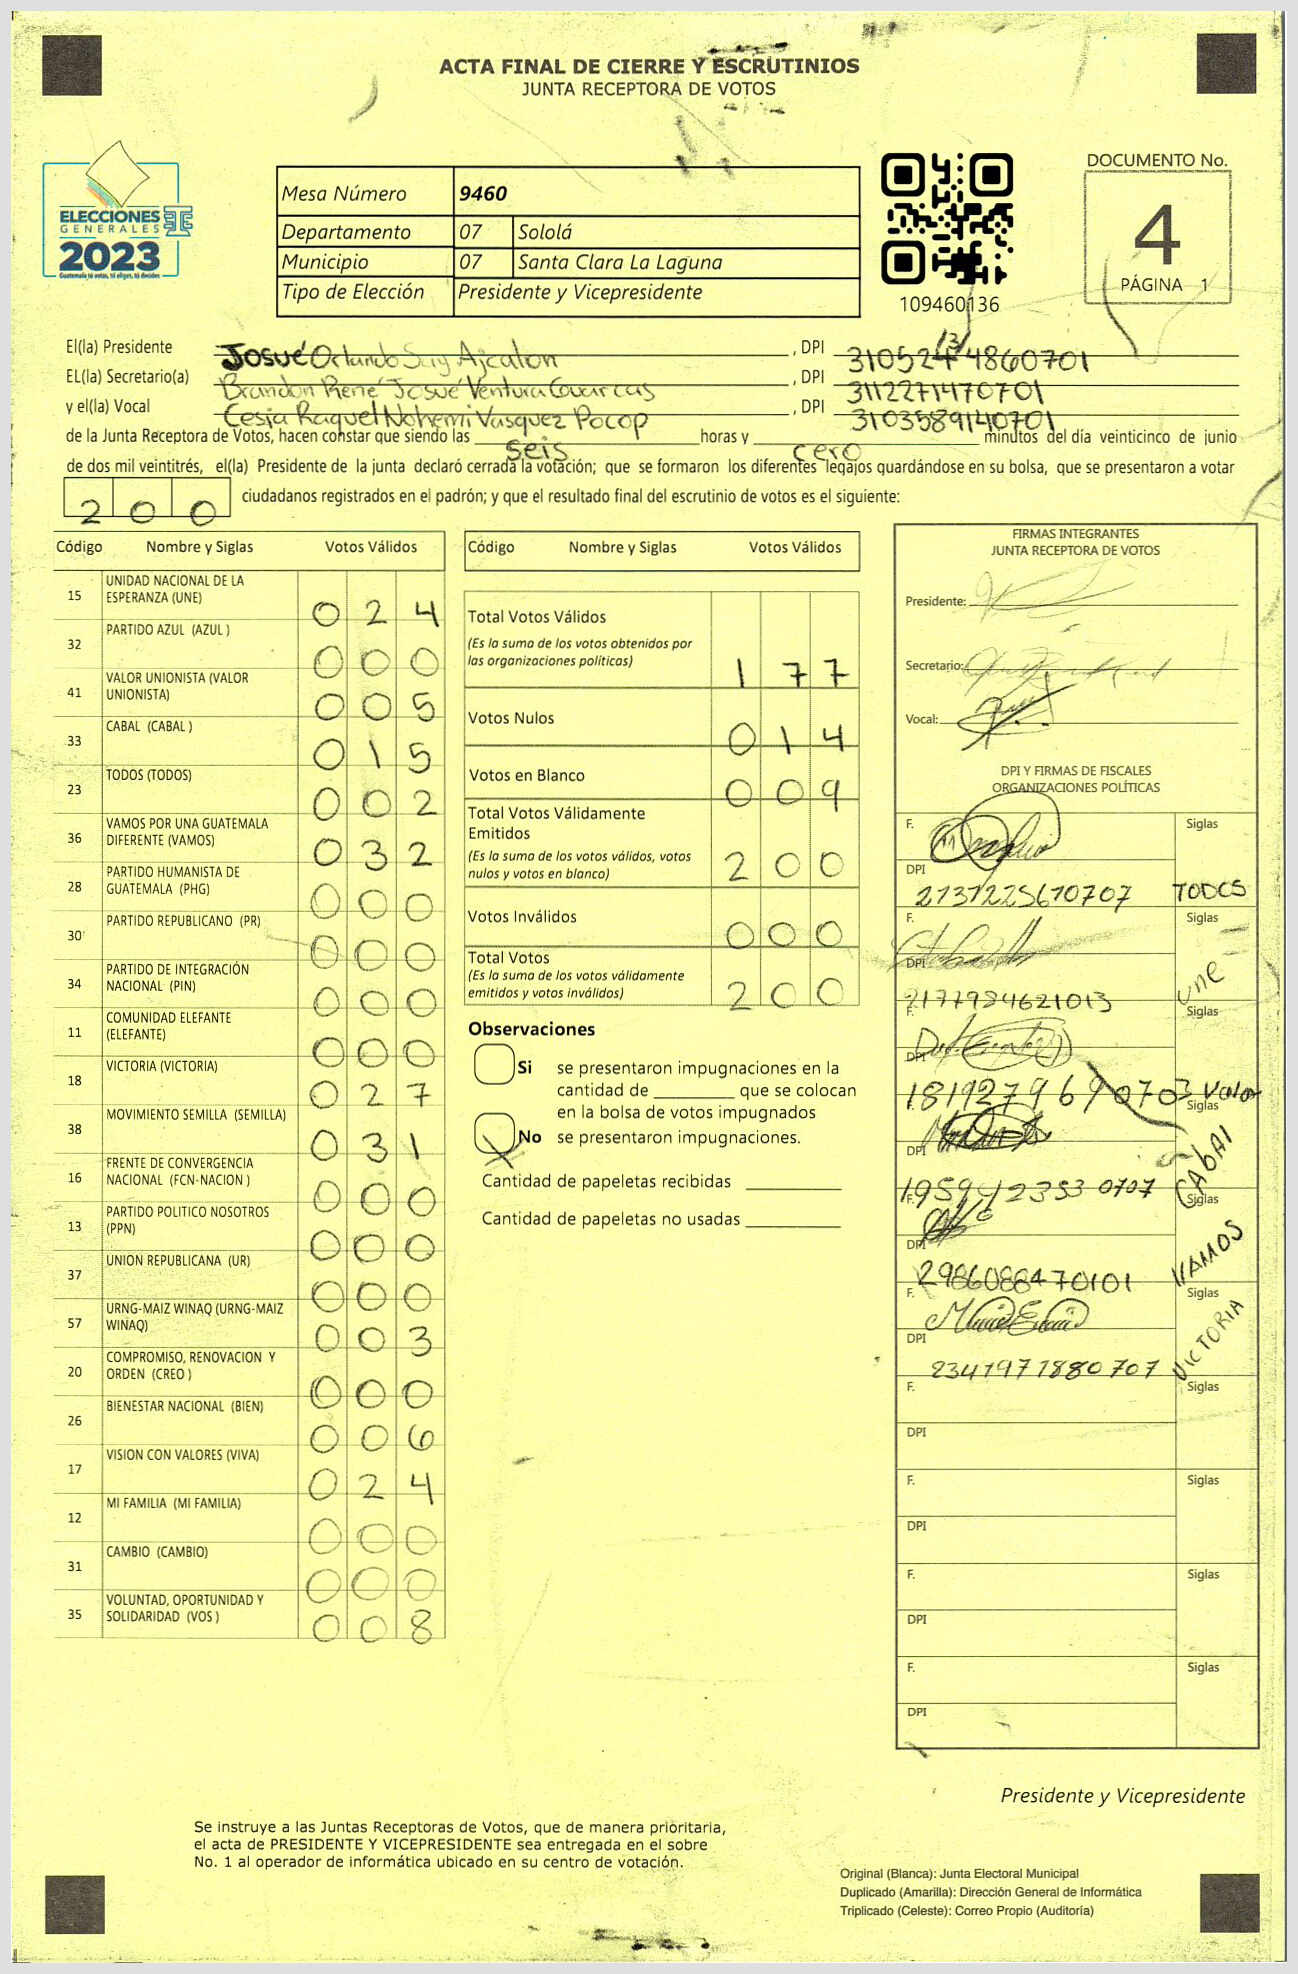 ACTA FINAL DE CIERRE Y ESCRUTINIOS
JUNTA RECEPTORA DE VOTOS
ELECCIONES
GENERALES
2023
Guatemala tú votas, tú eliges, tú decides
Mesa Número 9460
Departamento 07 Sololá
Municipio 07 Santa Clara La Laguna
Tipo de Elección Presidente y Vicepresidente
109460136
DOCUMENTO No.
4
PÁGINA 1
El(la) Presidente Josué Orlando Suy Ajcalon, DPI
EL(la) Secretario(a) Brandon René Josué Ventura, DPI 3112271470701
y el(la) Vocal Cesia Raquel Nohemi Vasquez Pocop, DPI 3103589140701
de la Junta Receptora de Votos, hacen constar que siendo las seis horas y cero minutos del día veinticinco de junio
de dos mil veintitrés, el(la) Presidente de la junta declaró cerrada la votación; que se formaron los diferentes legajos guardándose en su bolsa, que se presentaron a votar
200 ciudadanos registrados en el padrón; y que el resultado final del escrutinio de votos es el siguiente:
Código Nombre y Siglas Votos Válidos
15 UNIDAD NACIONAL DE LA ESPERANZA (UNE) 024
32 PARTIDO AZUL (AZUL ) 000
41 VALOR UNIONISTA (VALOR UNIONISTA) 005
33 CABAL (CABAL ) 015
23 TODOS (TODOS) 002
36 VAMOS POR UNA GUATEMALA DIFERENTE (VAMOS) 032
28 PARTIDO HUMANISTA DE GUATEMALA (PHG) 000
30 PARTIDO REPUBLICANO (PR) 000
34 PARTIDO DE INTEGRACIÓN NACIONAL (PIN) 000
11 COMUNIDAD ELEFANTE (ELEFANTE) 000
18 VICTORIA (VICTORIA) 027
38 MOVIMIENTO SEMILLA (SEMILLA) 031
16 FRENTE DE CONVERGENCIA NACIONAL (FCN-NACION ) 000
13 PARTIDO POLITICO NOSOTROS (PPN) 000
37 UNION REPUBLICANA (UR) 000
57 URNG-MAIZ WINAQ (URNG-MAIZ WINAQ) 003
20 COMPROMISO, RENOVACION Y ORDEN (CREO ) 000
26 BIENESTAR NACIONAL (BIEN) 006
17 VISION CON VALORES (VIVA) 024
12 MI FAMILIA (MI FAMILIA) 000
31 CAMBIO (CAMBIO) 000
35 VOLUNTAD, OPORTUNIDAD Y SOLIDARIDAD (VOS ) 008
Código Nombre y Siglas Votos Válidos
Total Votos Válidos
(Es la suma de los votos obtenidos por
las organizaciones políticas) 177
Votos Nulos 014
Votos en Blanco 009
Total Votos Válidamente
Emitidos
(Es la suma de los votos válidos, votos
nulos y votos en blanco) 200
Votos Inválidos 000
Total Votos
(Es la suma de los votos válidamente
emitidos y votos inválidos) 200
Observaciones
Si se presentaron impugnaciones en la
cantidad de ________ que se colocan
en la bolsa de votos impugnados
X No se presentaron impugnaciones.
Cantidad de papeletas recibidas
Cantidad de papeletas no usadas
FIRMAS INTEGRANTES
JUNTA RECEPTORA DE VOTOS
Presidente:
Secretario:
Vocal:
DPI Y FIRMAS DE FISCALES
ORGANIZACIONES POLÍTICAS
F. Siglas
DPI 2737225670707 TODOS
F. Siglas
DPI 2177984621013 UNE
F. Siglas
DPI 1819279690703 Valor
F. Siglas
DPI 1959423530707 CABAL
F. Siglas
DPI 2986088470101 VAMOS
F. Siglas
DPI 2341971880707 VICTORIA
F. Siglas
DPI
F. Siglas
DPI
F. Siglas
DPI
F. Siglas
DPI
Presidente y Vicepresidente
Se instruye a las Juntas Receptoras de Votos, que de manera prioritaria,
el acta de PRESIDENTE Y VICEPRESIDENTE sea entregada en el sobre
No. 1 al operador de informática ubicado en su centro de votación.
Original (Blanca): Junta Electoral Municipal
Duplicado (Amarilla): Dirección General de Informática
Triplicado (Celeste): Correo Propio (Auditoría)